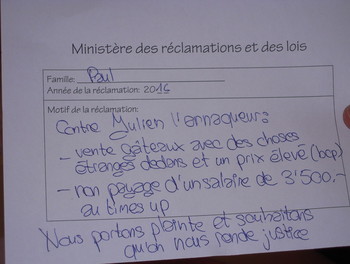 Ministère des réclamations et des lois
Famille: Paul
Année de la réclamation: 2016
Motif de la réclamation:
Contre Julien l'arnaqueur:
- vente gâteaux avec des choses
étranges dedans et un prix élevé (bcp)
- non payage d'un salaire de 3'500.-
au times up
Nous portons plainte et souhaitons
qu'on nous rende justice